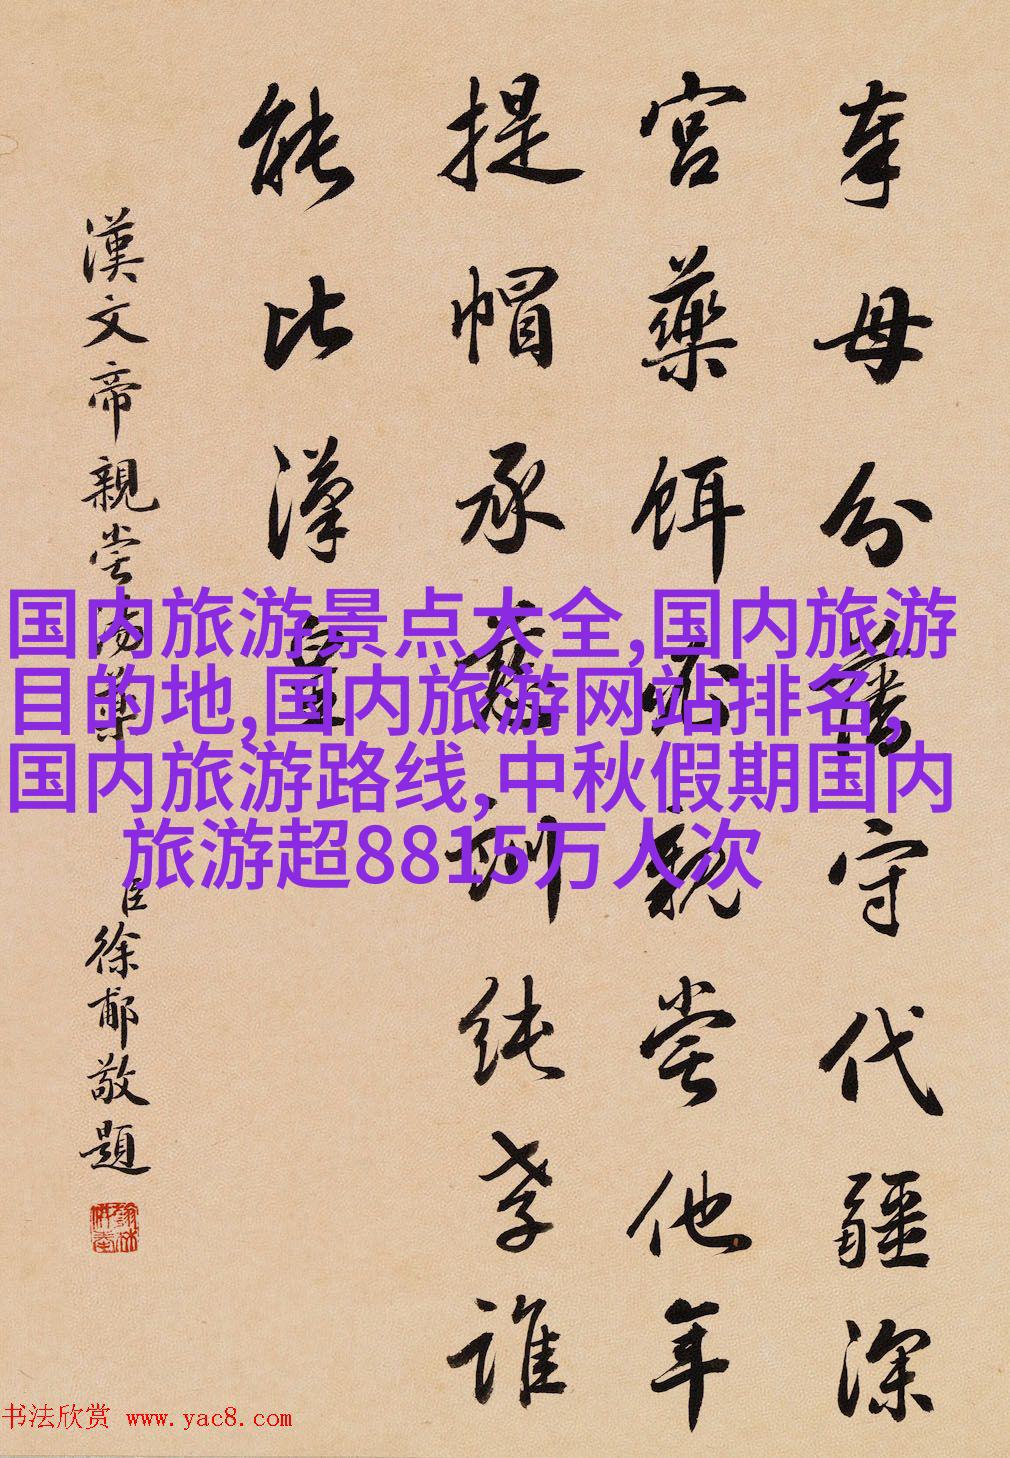 奉母分藩守代疆深
宮藥餌必親嘗他年
提帽承慈訓純孝誰
能比漢皇
漢文帝親嘗湯藥
臣徐郙敬題
国内旅游景点大全,国内旅游
目的地,国内旅游网站排名,
国内旅游路线,中秋假期国内
旅游超8815万人次
书法欣赏 www.yac8.com